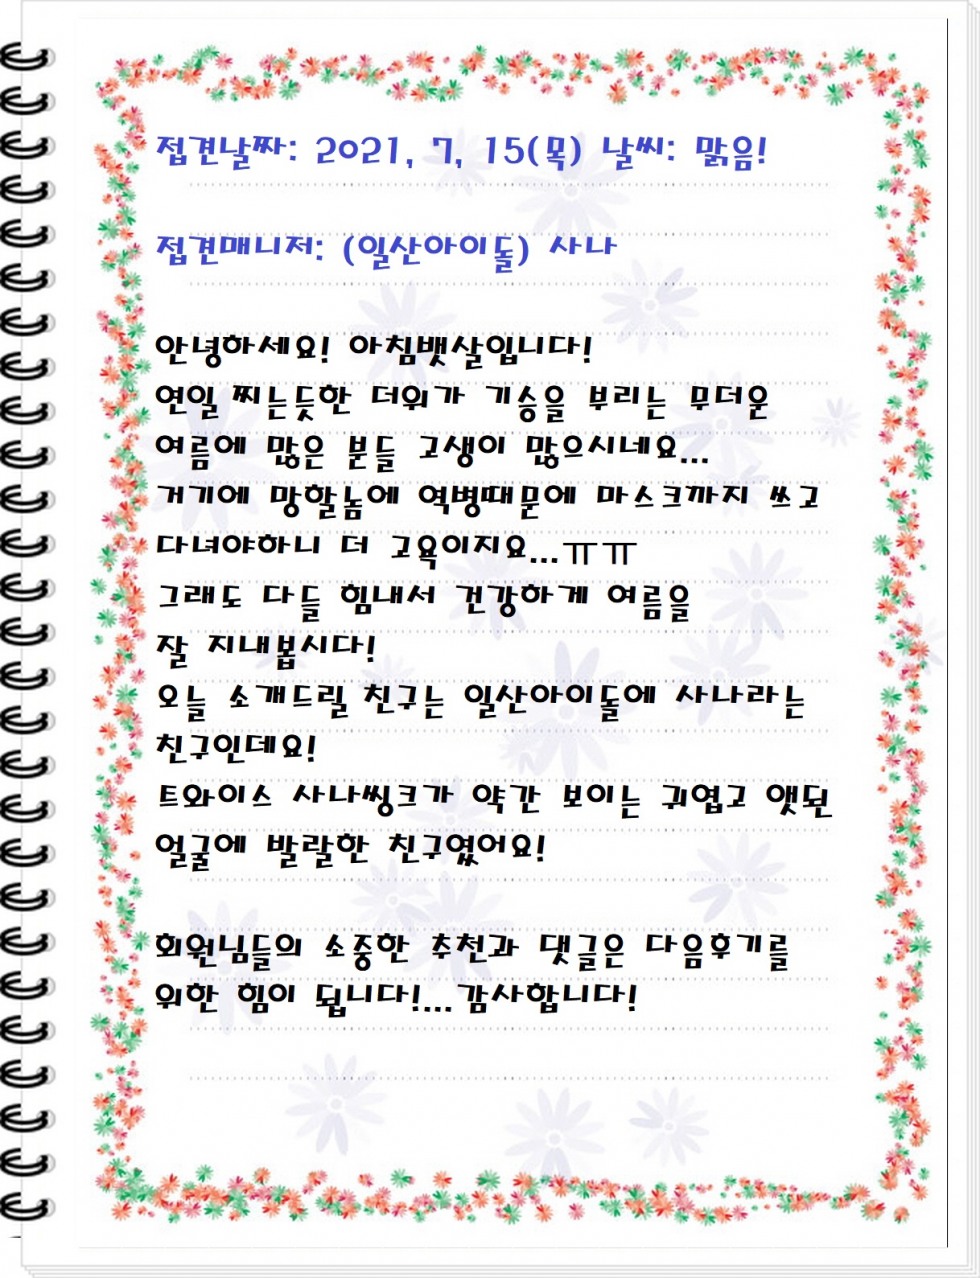 접견날짜: 2021, 7, 15(목) 날씨: 맑음!
접견매니저: (일산아이돌) 사나
안녕하세요! 아침뱃살입니다!
연일 찌는듯한 더위가 기승을 부리는 무더운
여름에 많은 분들 고생이 많으시네요...
거기에 망할놈에 역병때문에 마스크까지 쓰고
다녀야하니 더 고욕이지요...ㅠㅠ
그래도 다들 힘내서 건강하게 여름을
잘 지내봅시다!
오늘 소개드릴 친구는 일산아이돌에 사나라는
친구인데요!
트와이스 사나씽크가 약간 보이는 귀엽고 앳된
얼굴에 발랄한 친구였어요!
회원님들의 소중한 추천과 댓글은 다음후기를
위한 힘이 됩니다!...감사합니다!